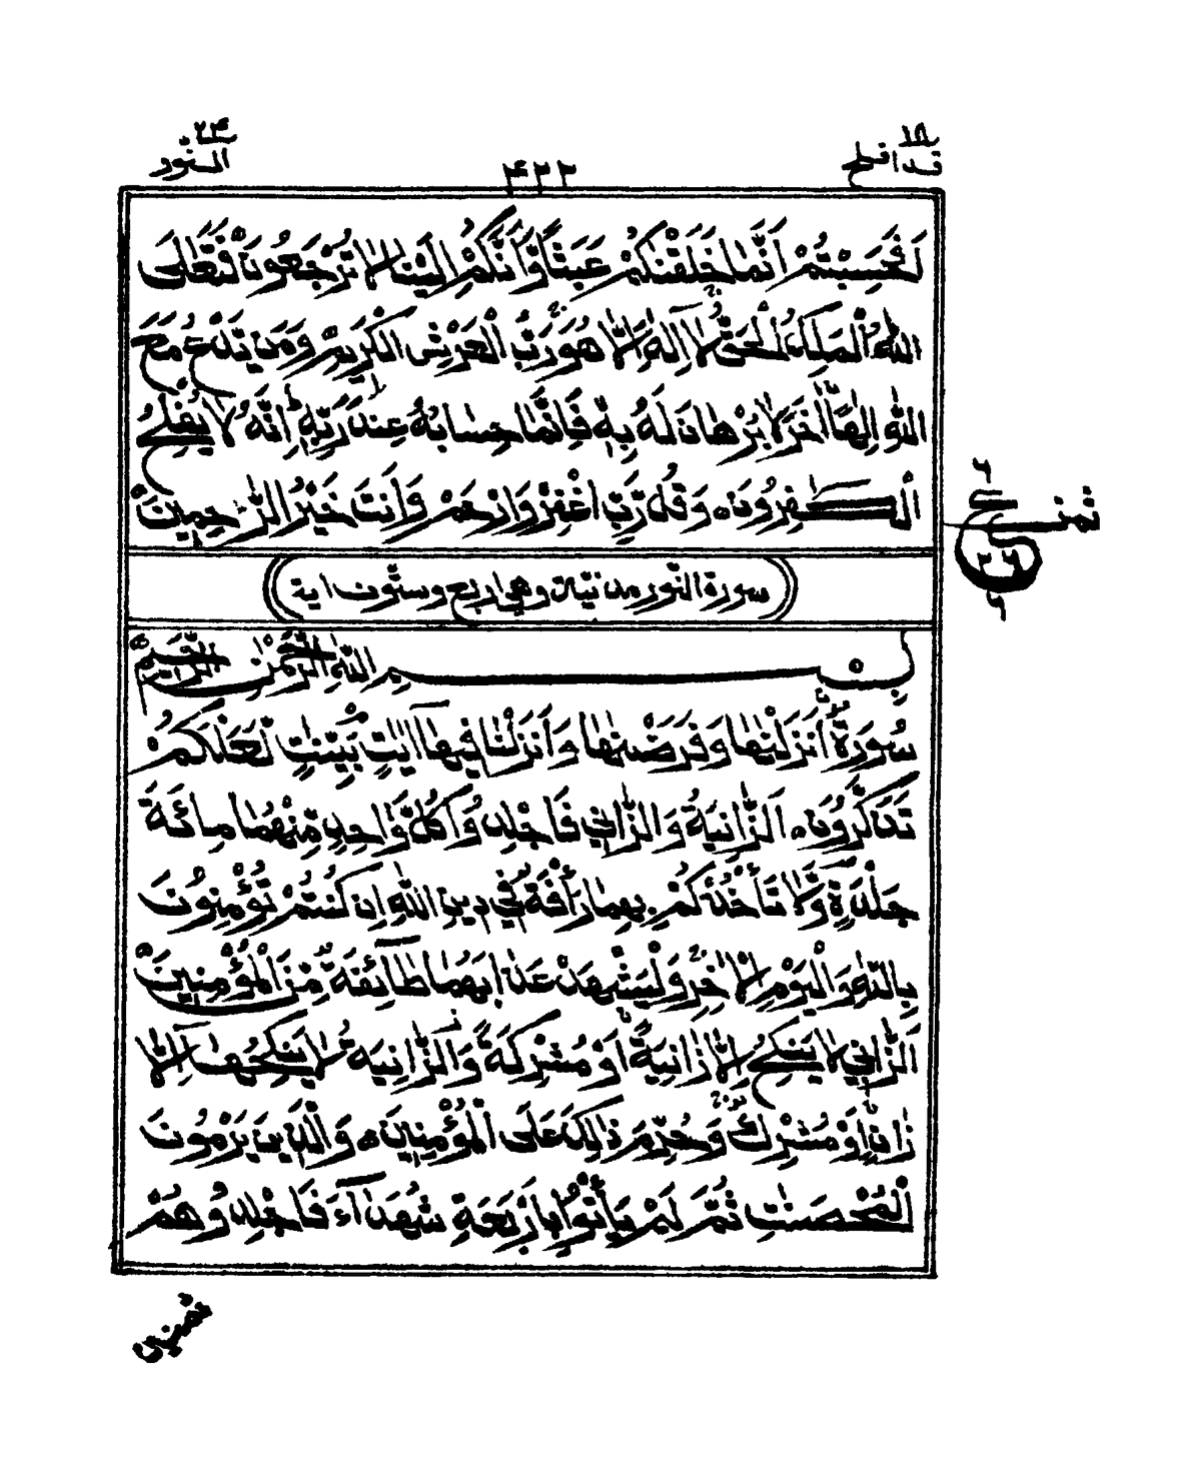 ۱۸
قد افلح
۴۲۲
۲۴
النور
اَفَحَسِبْتُمْ اَنَّمَا خَلَقْنٰكُمْ عَبَثًا وَّاَنَّكُمْ اِلَيْنَا لَا تُرْجَعُوْنَ فَتَعٰلَى
اللّٰهُ الْمَلِكُ الْحَقُّ لَآ اِلٰهَ اِلَّا هُوَ رَبُّ الْعَرْشِ الْكَرِيْمِ وَمَنْ يَّدْعُ مَعَ
اللّٰهِ اِلٰهًا اٰخَرَ لَا بُرْهَانَ لَهٗ بِهٖ فَاِنَّمَا حِسَابُهٗ عِنْدَ رَبِّهٖ ط اِنَّهٗ لَا يُفْلِحُ
الْكٰفِرُوْنَ ه وَقُلْ رَّبِّ اغْفِرْ وَارْحَمْ وَاَنْتَ خَيْرُ الرّٰحِمِيْنَ
ثمن
۶
ع
۲۶
۶
سورة النور مدنيّة وهي اربع وستّون اية
بِسْمِ اللّٰهِ الرَّحْمٰنِ الرَّحِيْمِ
سُوْرَةٌ اَنْزَلْنٰهَا وَفَرَضْنٰهَا وَاَنْزَلْنَا فِيْهَآ اٰيٰتٍۭ بَيِّنٰتٍ لَّعَلَّكُمْ
تَذَكَّرُوْنَ ه اَلزَّانِيَةُ وَالزَّانِيْ فَاجْلِدُوْا كُلَّ وَاحِدٍ مِّنْهُمَا مِائَةَ
جَلْدَةٍ وَّلَا تَأْخُذْكُمْ بِهِمَا رَأْفَةٌ فِيْ دِيْنِ اللّٰهِ اِنْ كُنْتُمْ تُؤْمِنُوْنَ
بِاللّٰهِ وَالْيَوْمِ الْاٰخِرِ وَلْيَشْهَدْ عَذَابَهُمَا طَآئِفَةٌ مِّنَ الْمُؤْمِنِيْنَ
اَلزَّانِيْ لَا يَنْكِحُ اِلَّا زَانِيَةً اَوْ مُشْرِكَةً وَّالزَّانِيَةُ لَا يَنْكِحُهَآ اِلَّا
زَانٍ اَوْ مُشْرِكٌ وَحُرِّمَ ذٰلِكَ عَلَى الْمُؤْمِنِيْنَ ه وَالَّذِيْنَ يَرْمُوْنَ
الْمُحْصَنٰتِ ثُمَّ لَمْ يَأْتُوْا بِاَرْبَعَةِ شُهَدَآءَ فَاجْلِدُوْهُمْ
ثمنين